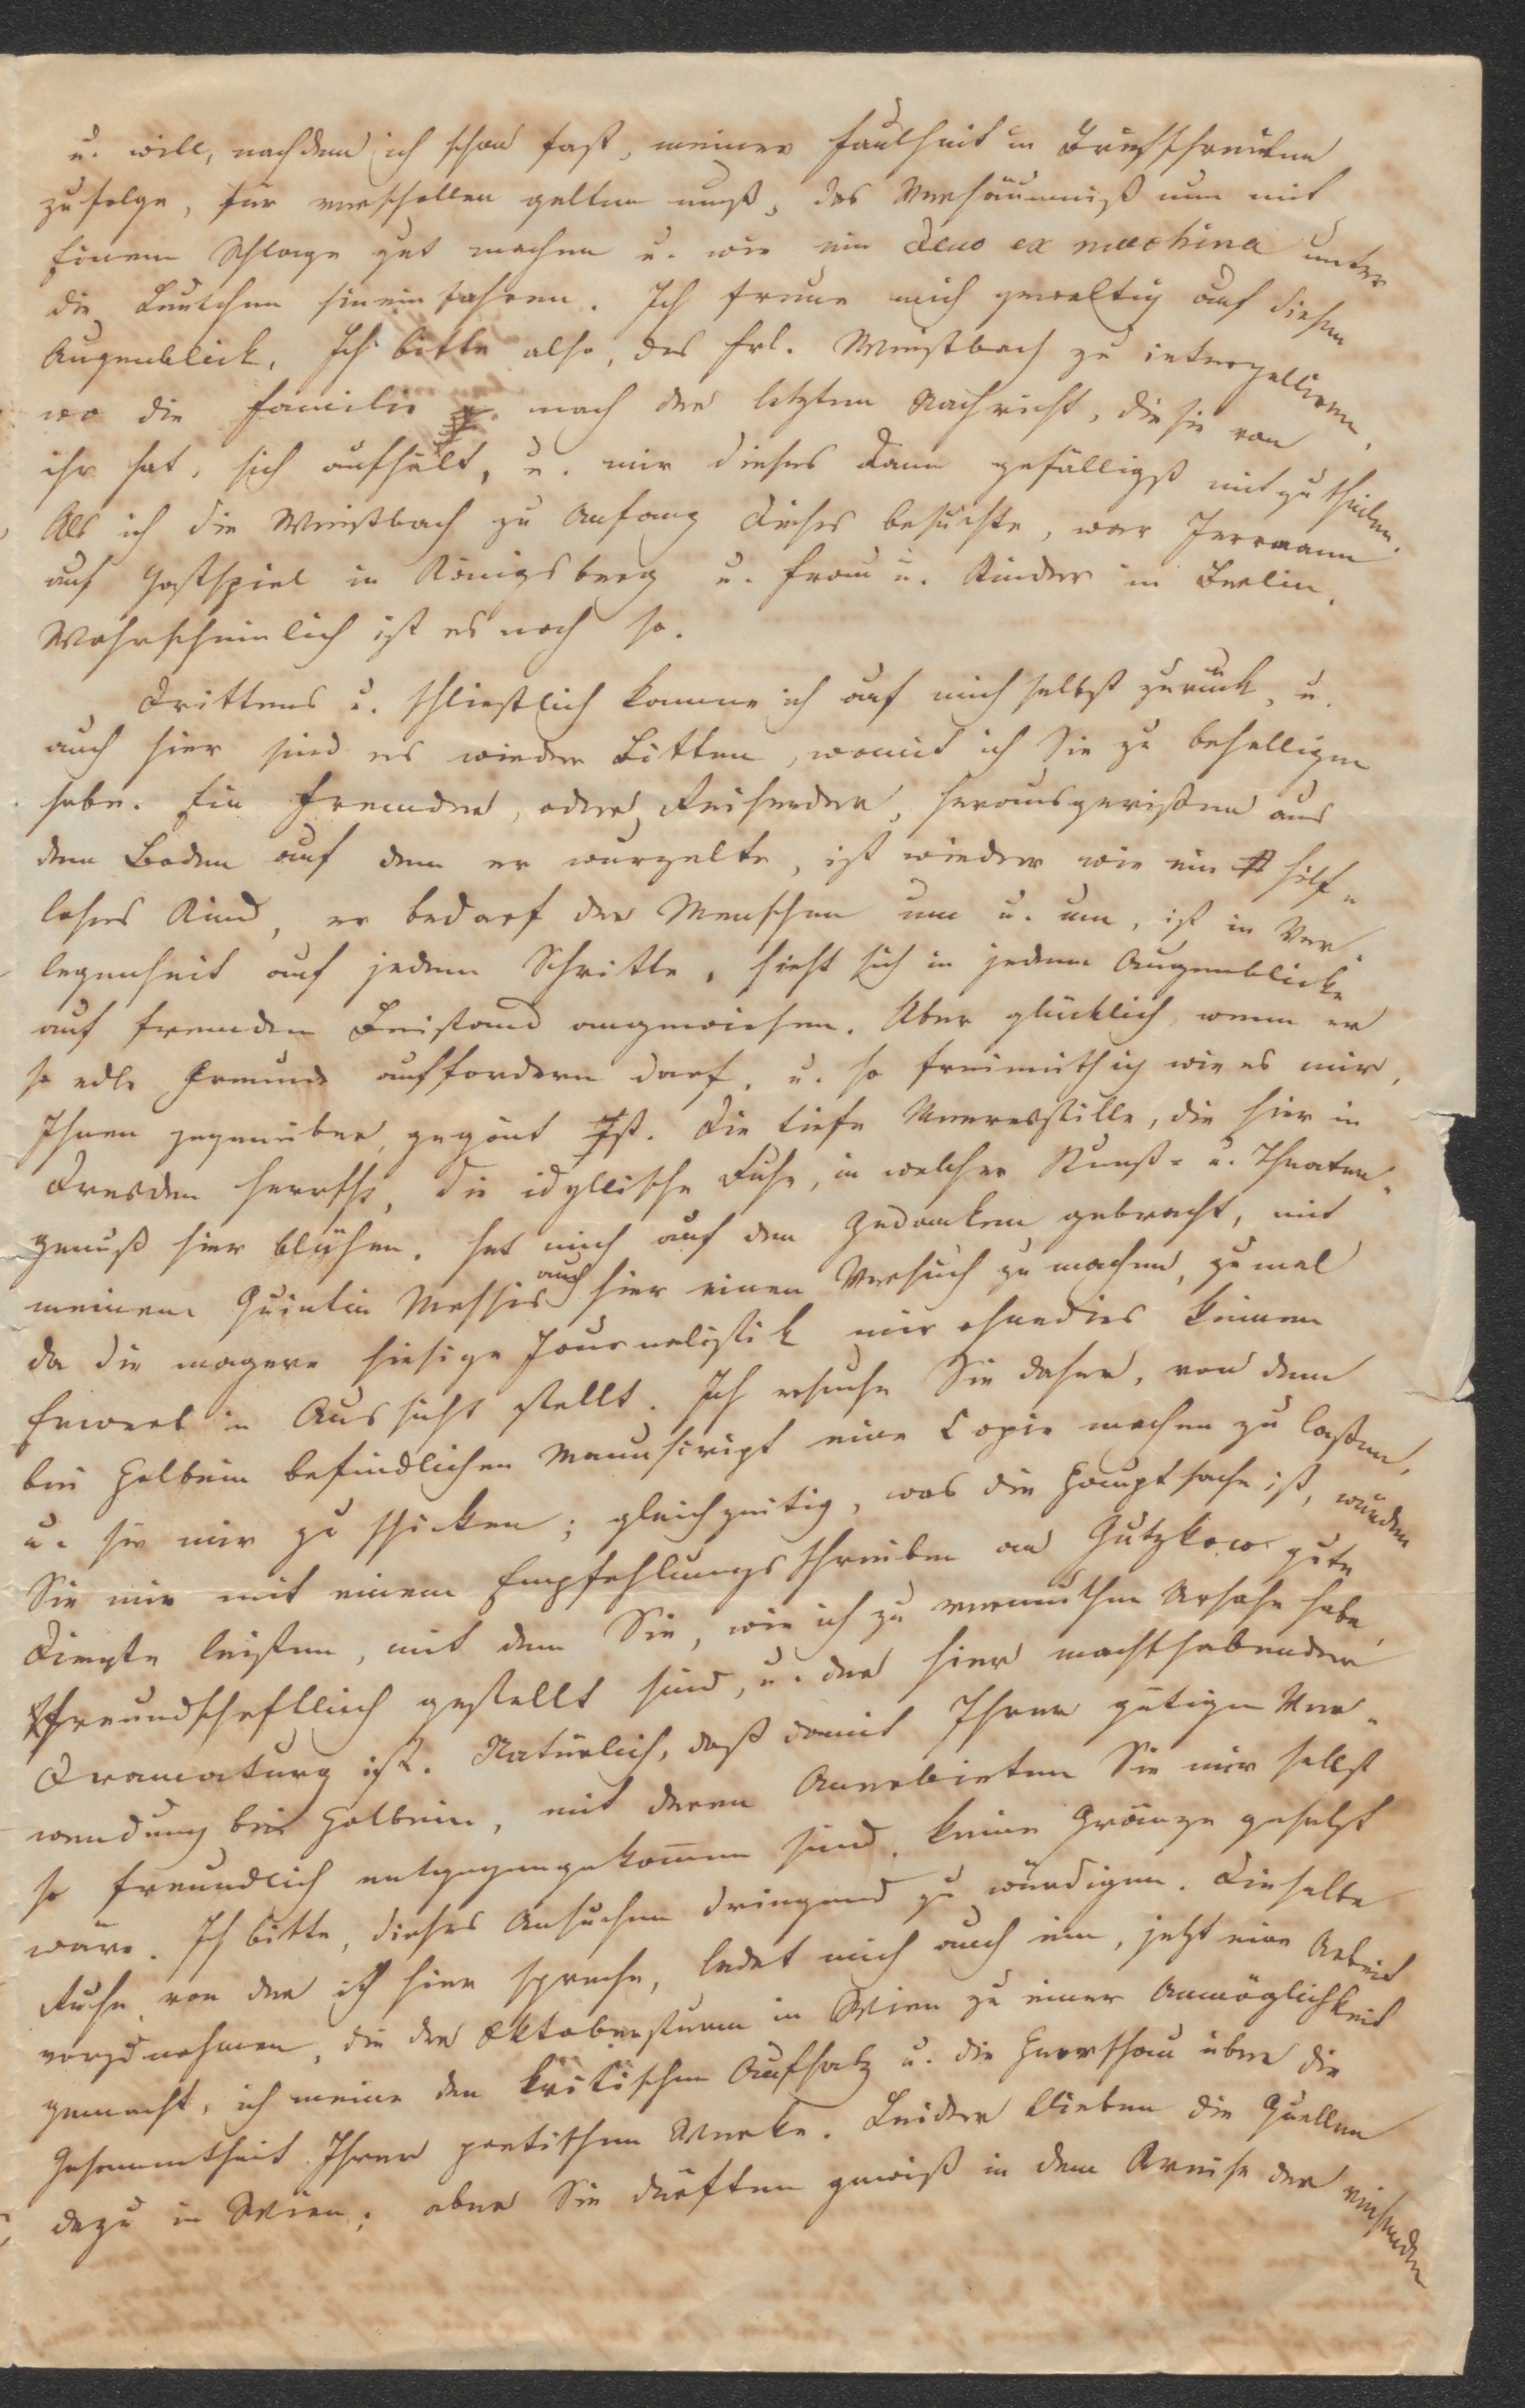 u. will, nachdem ich schon fast, meiner Faulheit im Briefschreiben
zufolge, für verschollen gelten muß, das Versäumniß nun mit
Einem Schlage gut machen u. wie ein deus ex machina unter
die Leutchen hineinfahren. Ich freue mich gewaltig auf diesen
Augenblick. Ich bitte also, das Frl. Weißbach zu interpelliren,
wo die Familie nach der letzten Nachricht, die sie von
ihr hat, sich aufhält, u. mir dieses dann gefälligst mitzutheilen.
Als ich die Weißbach zu Anfang dieses besuchte, war Jerrmann
auf Gastspiel in Königsberg u. Frau u. Kinder in Berlin.
Wahrscheinlich ist es noch so.
Drittens u. schließlich komme ich auf mich selbst zurück, u.
auch hier sind es wieder Bitten, womit ich Sie zu behelligen
habe. Ein Fremder, oder Reisender, herausgerißen aus
dem Boden auf dem er wurzelte, ist wieder wie ein hilf-
loses Kind, er bedarf der Menschen um u. um, ist in Ver-
legenheit auf jedem Schritte, sieht sich in jedem Augenblicke
auf fremden Beistand angewiesen. Aber glücklich, wenn er
so edle Freunde auffordern darf, u. so freimüthig wie es mir,
Ihnen gegenüber, gegönt ist. Die tiefe Meeresstille, die hier in
Dresden herrscht, die idyllische Ruhe, in welcher Kunst- u. Theater-
genuß hier blühen, hat mich auf den Gedanken gebracht, mit
meinem Quintin Messis auch hier einen Versuch zu machen, zumal
da die magere hiesige Journalistik mir ohnedies keinen
Erwerb in Aussicht stellt. Ich ersuche Sie daher, von dem
bei Holbein befindlichen Manuscript eine Copie machen zu laßen,
u. sie mir zu schicken; gleichzeitig, was die Hauptsache ist, würden
Sie mir mit einem Empfehlungsschreiben an Gutzkow gute
Dienste leisten, mit dem Sie, wie ich zu vermuthen Ursache habe,
freundschaftlich gestellt sind, u. der hier machthabender
Dramaturg ist. Natürlich, daß damit Ihrer gütigen Ver-
wendung bei Holbein, mit deren Anerbieten Sie mir selbst
so freundlich entgegengekomen sind, keine Gränze gesetzt
wäre. Ich bitte, dieses Ansuchen dringend zu würdigen. Dieselbe
Ruhe, von der ich hier spreche, ladet mich auch ein, jetzt eine Arbeit
vorzunehmen, die der Oktobersturm in Wien zu einer Unmöglichkeit
gemacht, ich meine den kritischen Aufsatz u. die Heerschau über die
Gesammtheit Ihrer poetischen Werke. Leider blieben die Quellen
dazu in Wien; aber Sie dürften gewiß in dem Kreise der